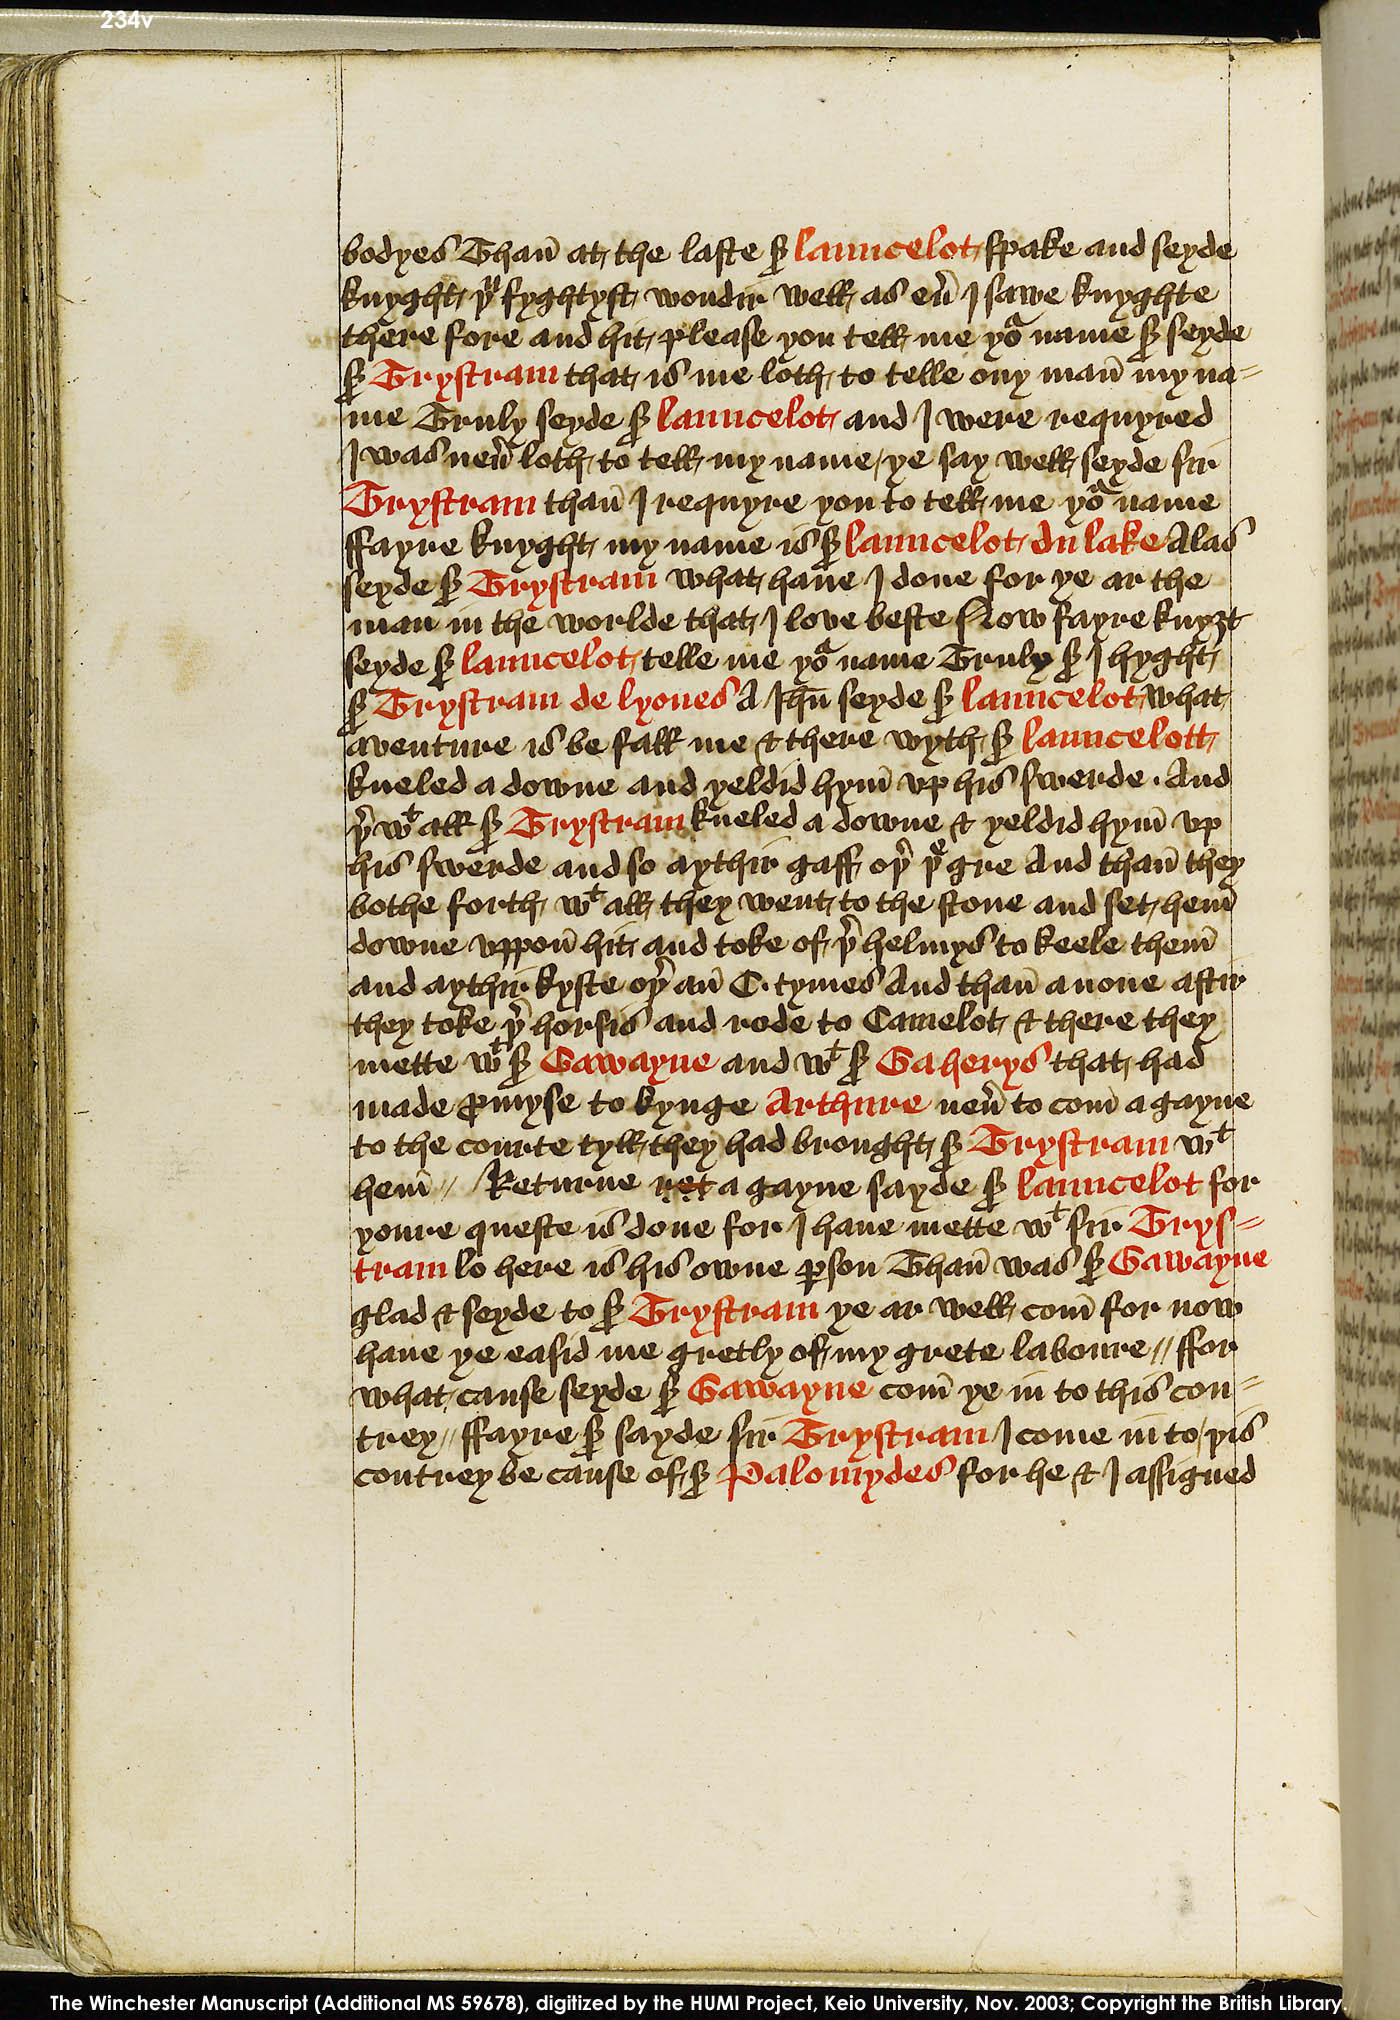 234v
bodyes Thañ at the laste sʳ launcelot spake and seyde
knyght þᵘ fyghtyst wondir well as eũ I sawe knyghte
there fore and hit please you tell me yoᵘ name sʳ seyde
sʳ Trystram that is me loth to telle ony mañ my na=
me Truly seyde sʳ launcelot and I were requyred
I was neũ loth to tell my name / ye say well seyde sir
Trystram thañ I requyre you to tell me yoᵘ name
ffayre knyght my name is sʳ launcelot du lake Alas
seyde sʳ Trystram what haue I done for ye ar the
man in the worlde that I love beste Now fayre knyȝt
seyde sʳ launcelot telle me yoᵘ name Truly sʳ I hyght
sʳ Trystram de lyones A Ihũ seyde sʳ launcelot what
aventure is be fall me & there wyth sʳ launcelott
kneled a downe and yeldid hym̃ vp his swerde · And
þʳ wᵗ all sʳ Trystram kneled a downe & yeldid hym̃ vp
his swerde and so aythir gaff oþʳ þᵉ gre And thañ they
bothe forth wᵗ all they went to the stone and set hem̃
downe vppoñ hit and toke of þʳ helmys to keele them̃
and aythir kyste oþʳ añ C · tymes And thañ anone aftir
they toke þʳ horsis and rode to Camelot & there they
mette wᵗ sʳ Gawayne and wᵗ sʳ Gaherys that had
made ꝓmyse to kynge Arthure neũ to com̃ a gayne
to the courte tyll they had brought sʳ Trystram wᵗ
hem̃ // Returne ret a gayne sayde sʳ launcelot for
youre queste is done for I haue mette wᵗ sir Trys=
tram lo here is his owne ꝑson Thañ was sʳ Gawayne
glad & seyde to sʳ Trystram ye ar well com̃ for now
haue ye easid me gretly of my grete laboure // ffor
what cause seyde sʳ Gawayne com̃ ye in to this con=
trey // ffayre sʳ sayde sir Trystram I come in to / þis
contrey be cause of sʳ Palomydes for he & I assigned
The Winchester Manuscript (Additional MS 59678), digitized by the HUMI Project, Keio University, Nov. 2003; Copyright the British Library.